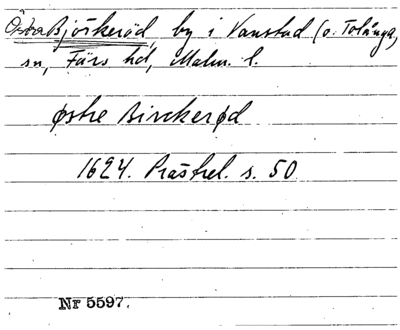 Östra Björkeröd, by i Vanstad (o. Tolånga)
sn, Färs hd, Malm. l.
østre Birckerød
1624. Prästrel. s. 50
Nr 5597.